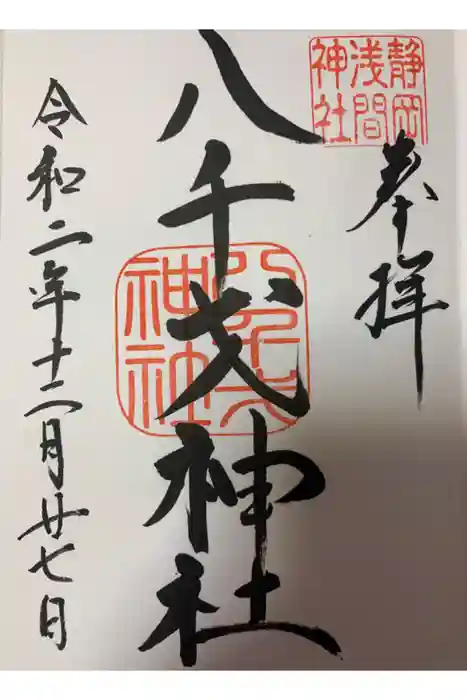 静岡
浅間
神社
奉拝
八千戈神社
八千戈
神社
令和二年十二月廿七日